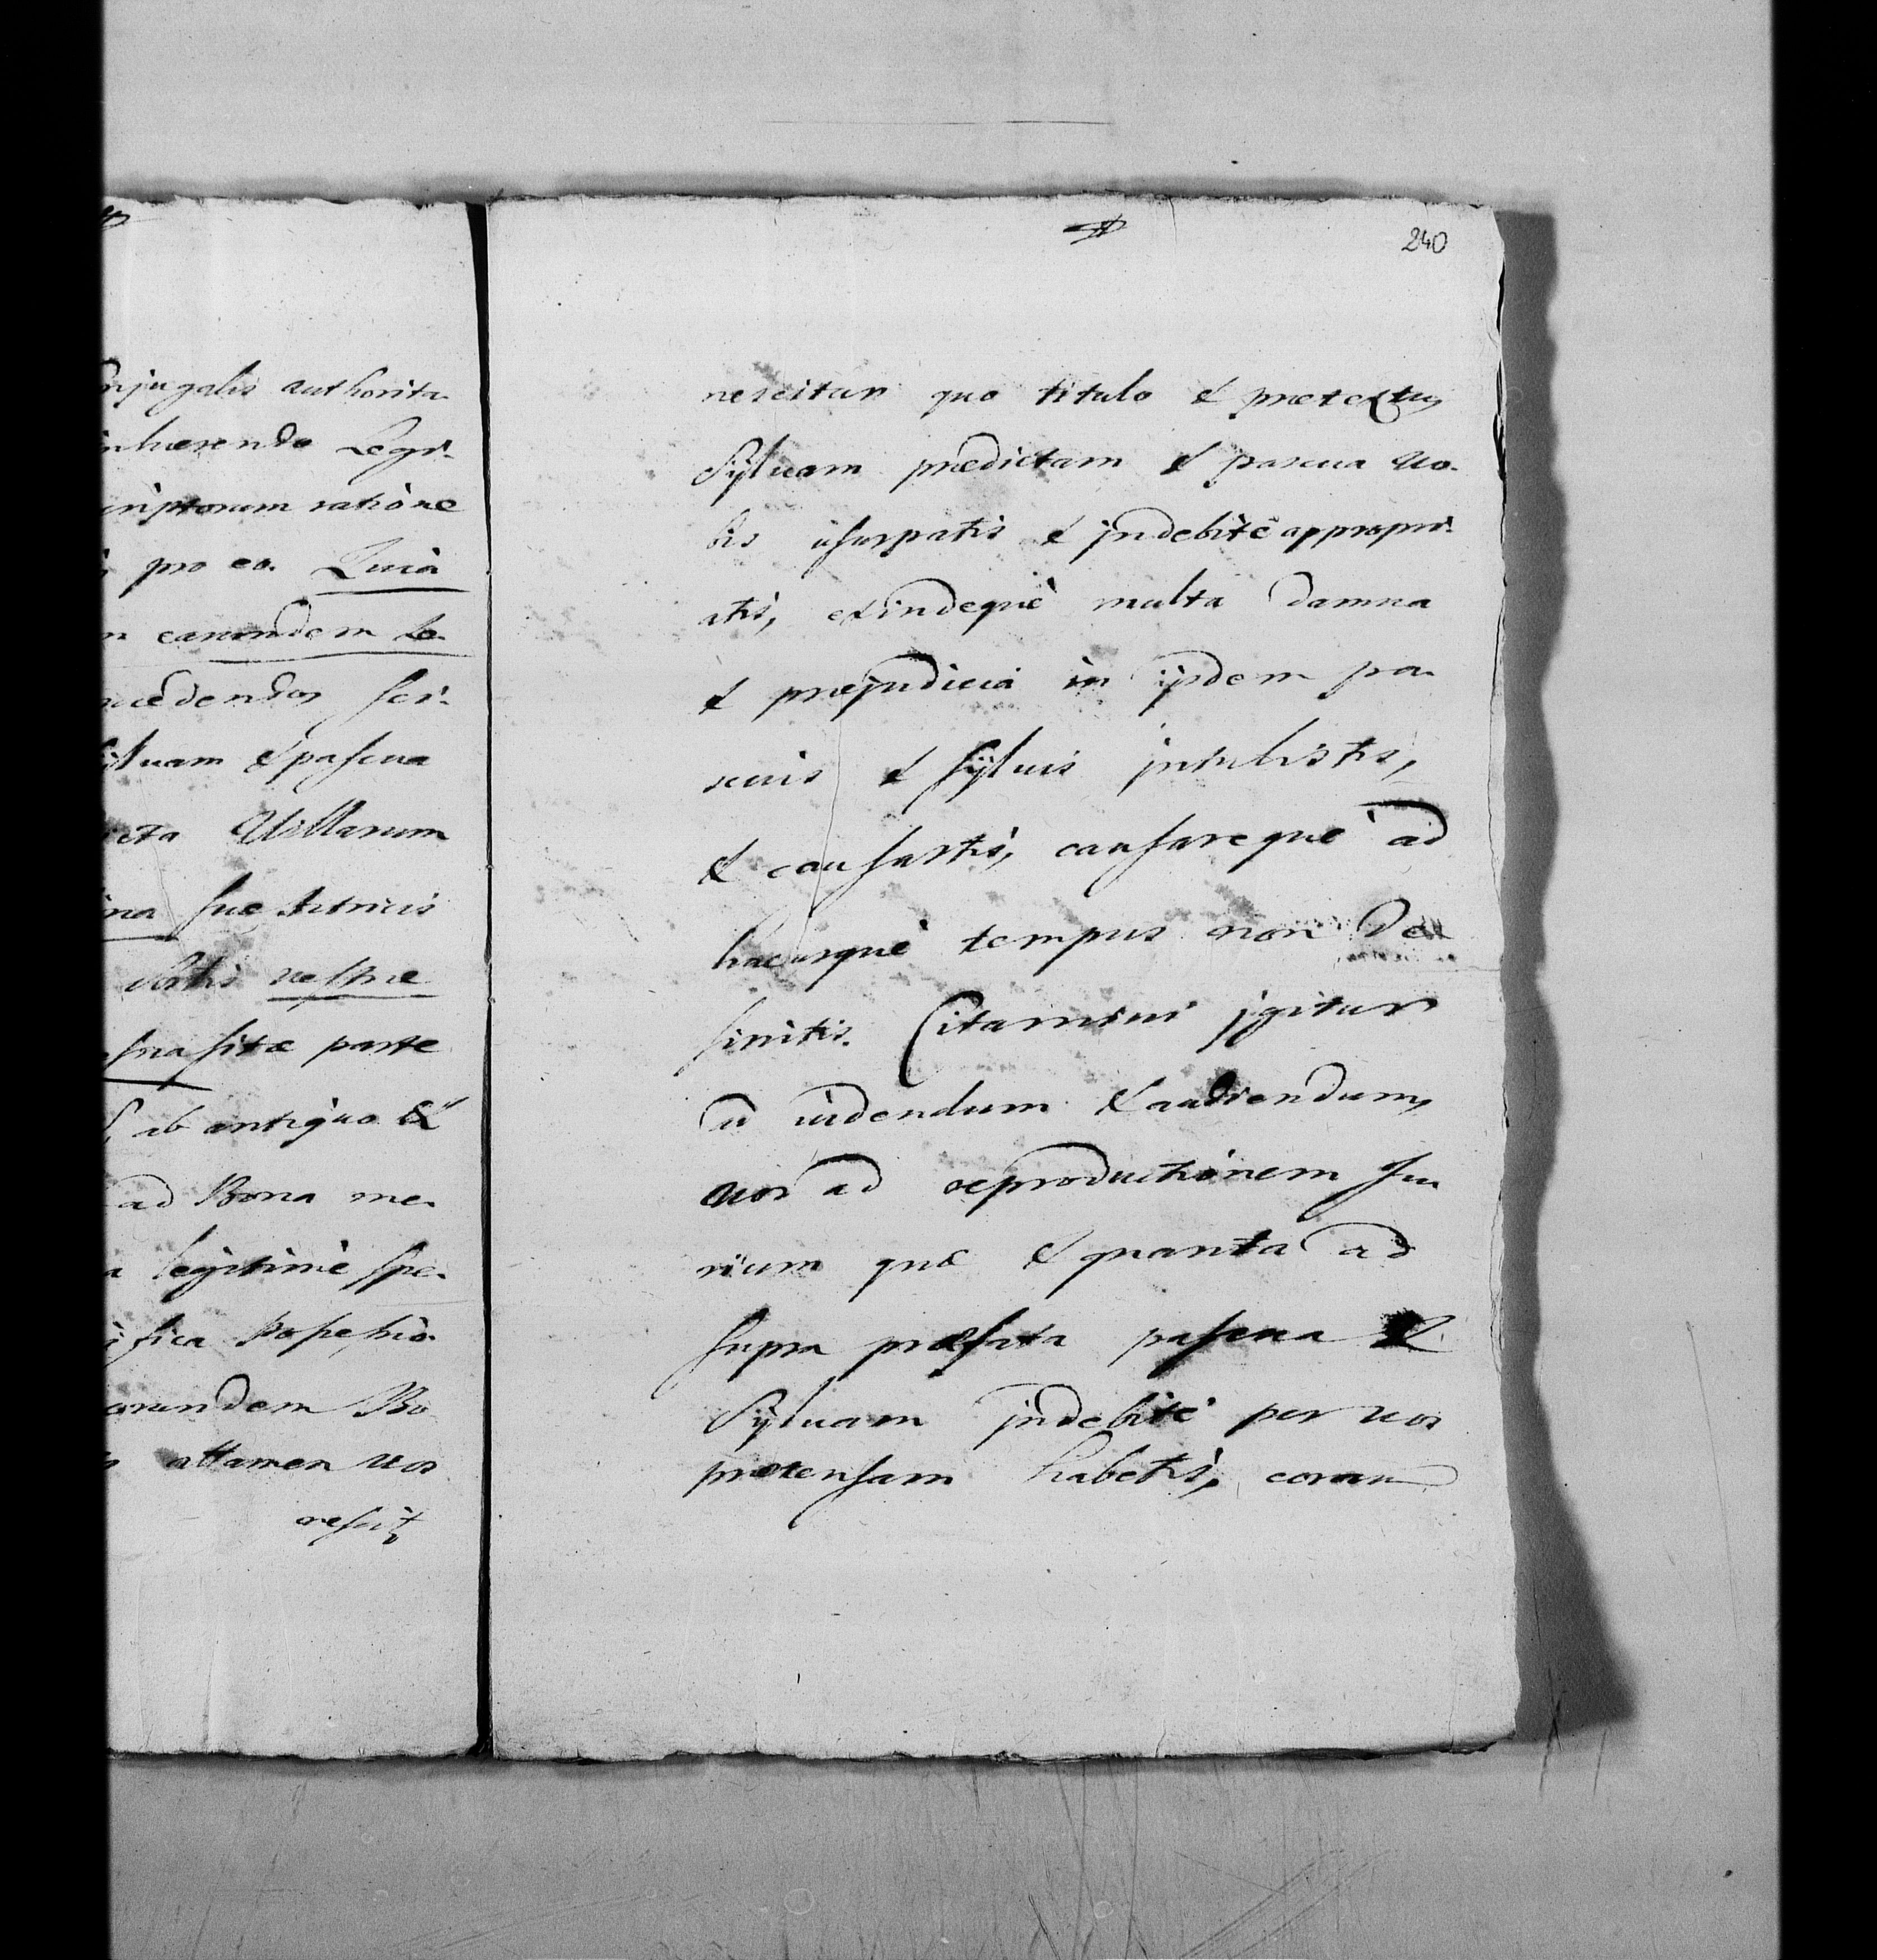 njugalis authorita-
nhærendo Legi-
criptorum ratione
pro eo. Quia
earundem Bo-
ncedendos sci-
siluam & pascua
icta Uillarum
suæ Petricis
respue
sitæ parte
ab antiquo &
ad Bona me-
a legitimè spe-
ifica Possessio-
orundem Bo-
attamen uos
nescit
240
nescitur quo titulo & prætextu,
Sÿluam prædictam & pascua uo-
bis usurpatis & jndebitè appropri-
atis, exindequè multa damna
& præjudicia in ijsdem pa-
scuis & sÿluis jntulistis,
& causastis, causarequè ad
hacusquè tempus non de-
sinitis. Citamini jgitur
ad uidendum & audiendum,
uos ad reproductionem Ju-
rium quæ & quanta ad
supra præfata pascua &
Sÿluam jndebitè per uos
prætensam habetis, coram